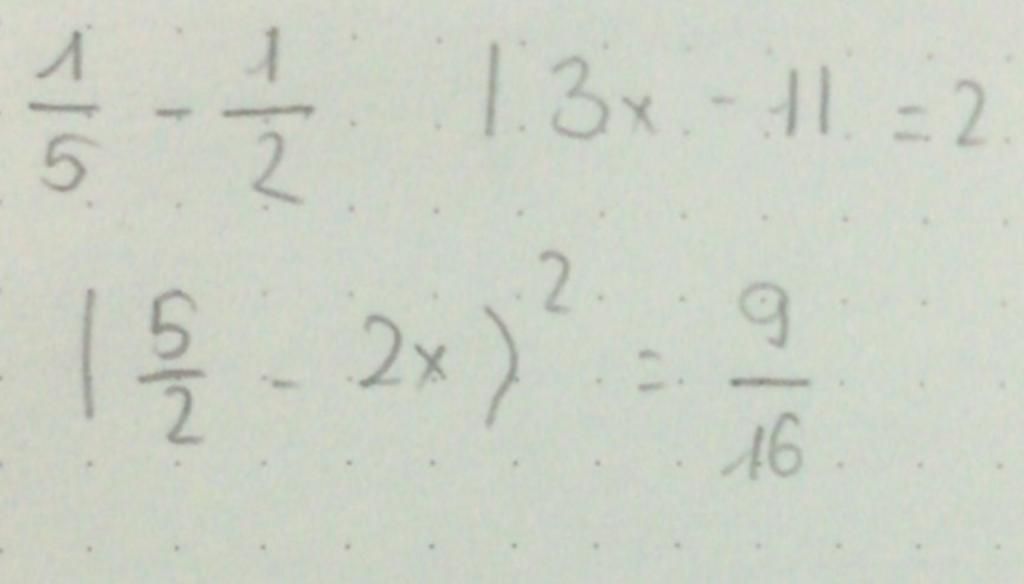 1/5 - 1/2 |3x - 1| = 2
(5/2 - 2x)² = 9/16